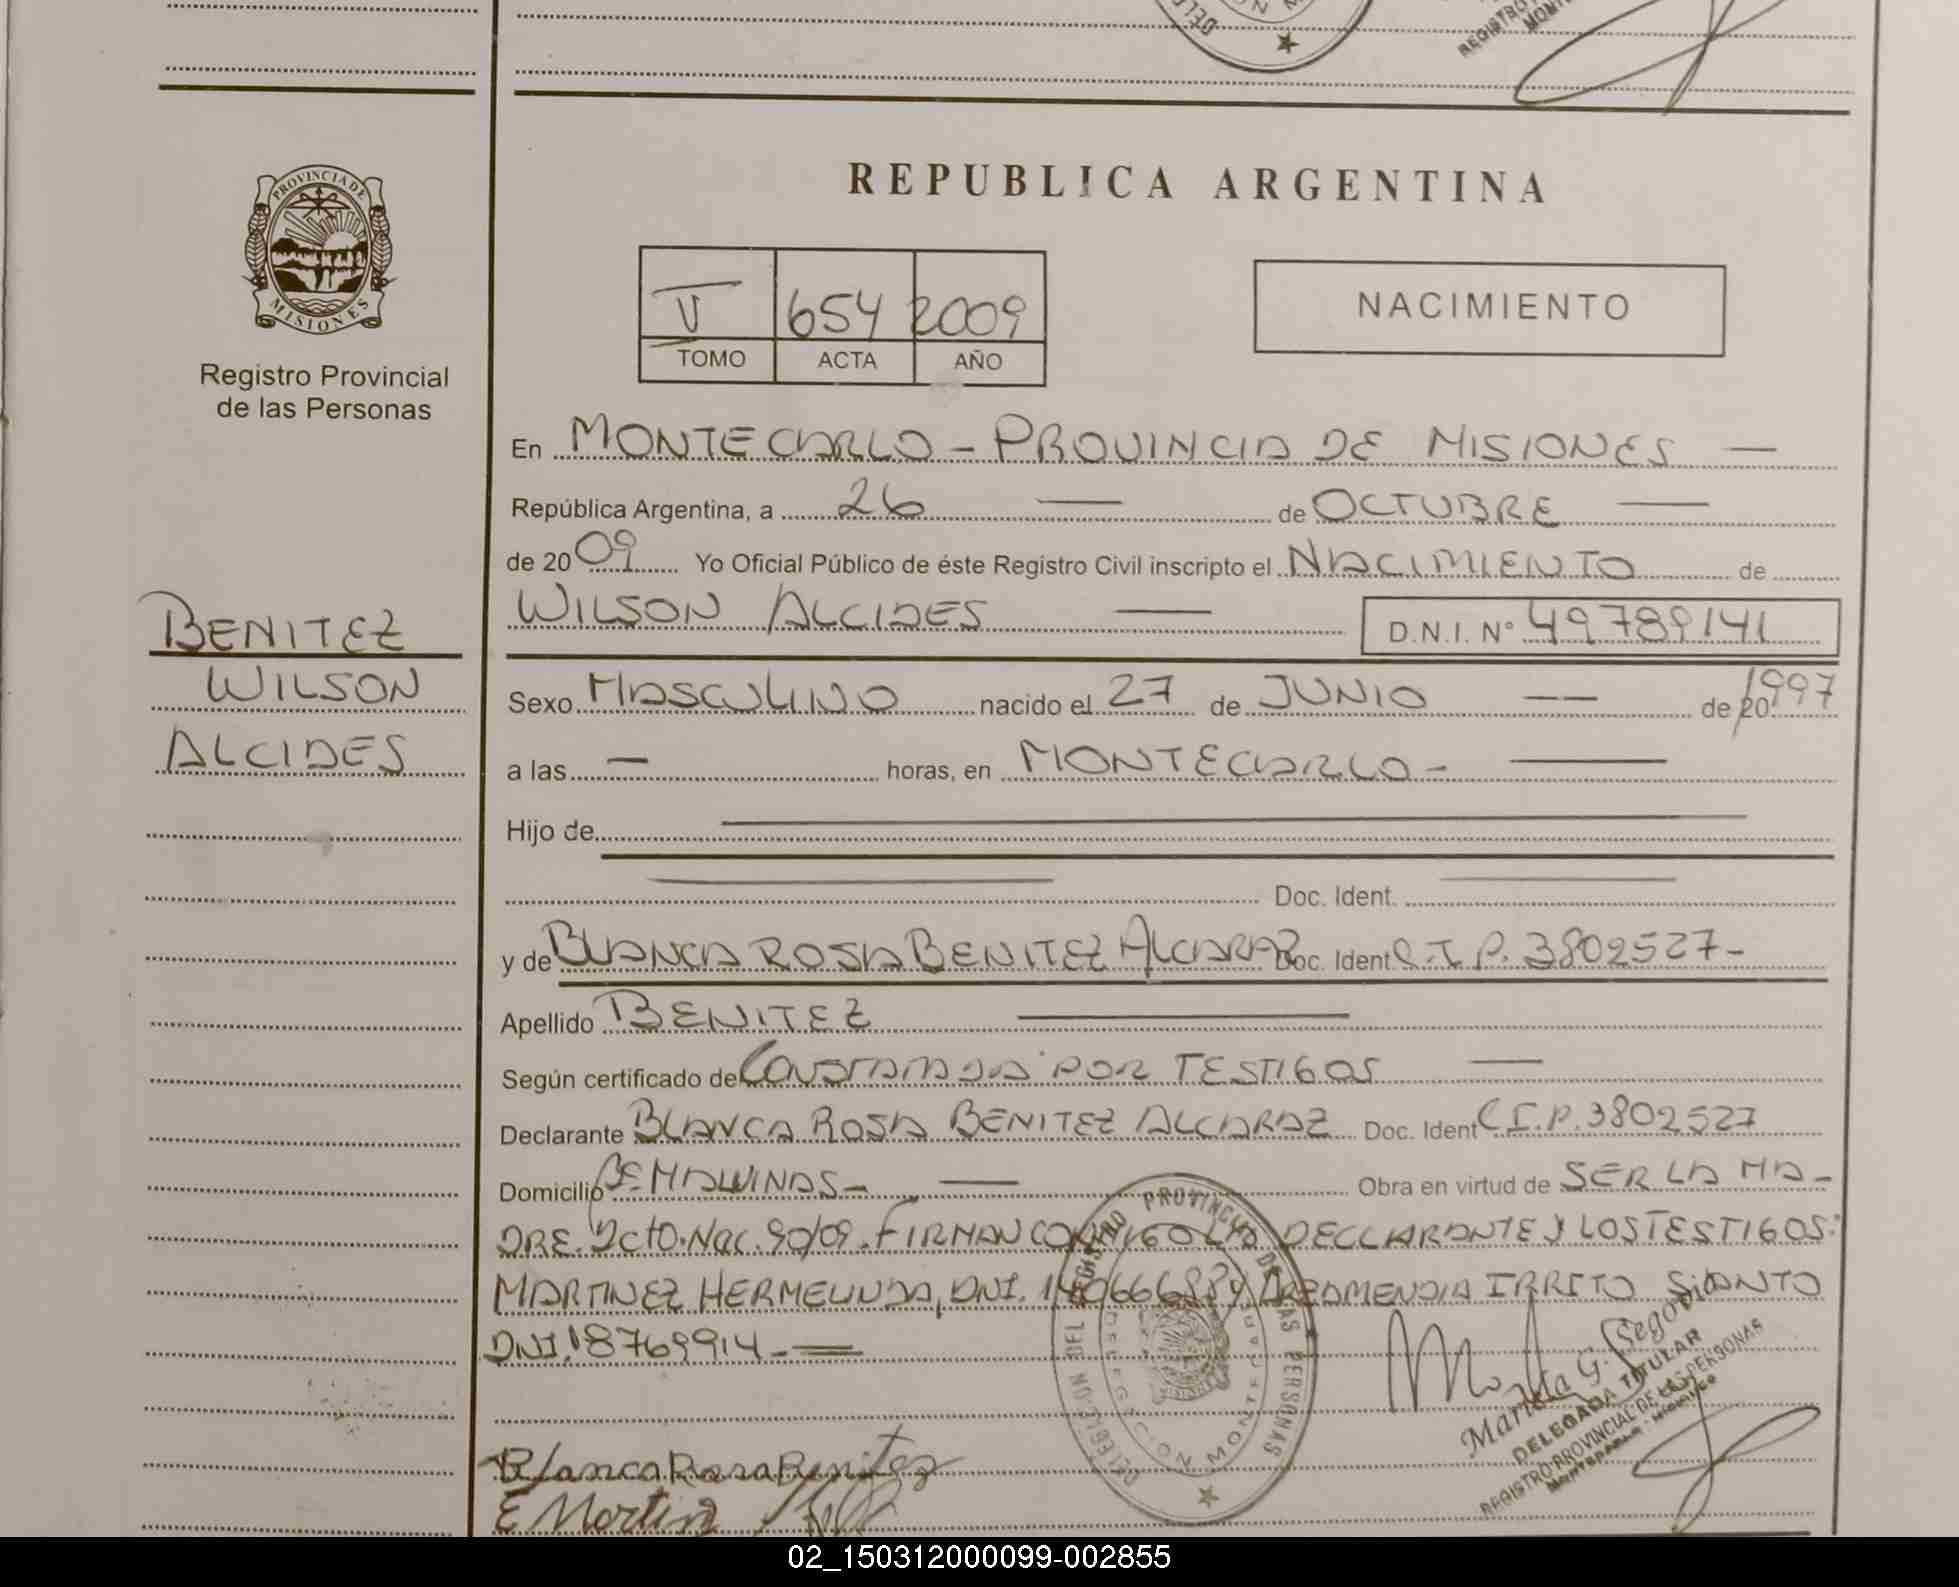 REPUBLICA ARGENTINA
PROVINCIA DE
MISIONES
Registro Provincial
de las Personas
V 654 2009
TOMO ACTA AÑO
NACIMIENTO
En MONTECARLO - PROVINCIA DE MISIONES —
República Argentina, a 26 — de OCTUBRE —
de 2009 Yo Oficial Público de éste Registro Civil inscripto el NACIMIENTO de
WILSON ALCIDES — D.N.I. N° 49789141
BENITEZ
WILSON
ALCIDES
Sexo MASCULINO nacido el 27 de JUNIO -- de 20 1997
a las — horas, en MONTECARLO - —
Hijo de —
— Doc. Ident. —
y de BLANCA ROSA BENITEZ ALCARAZ Doc. Ident C.I.P. 3802527-
Apellido BENITEZ —
Según certificado de CONSTATADA POR TESTIGOS —
Declarante BLANCA ROSA BENITEZ ALCARAZ Doc. Ident C.I.P. 3802527
Domicilio Bº MALVINAS - — Obra en virtud de SER LA MA-
DRE. Dcto. Nac. 90/09. FIRMAN CONMIGO LA DECLARANTE Y LOS TESTIGOS:
MARTINEZ HERMELINDA, DNI. IRRITO SANTO
DNI. 18769914 - —
REGISTRO PROVINCIAL DE LAS PERSONAS
DELEGACION MONTECARLO
Maria G. Segovia
DELEGADA TITULAR
REGISTRO PROVINCIAL DE LAS PERSONAS
Blanca Rosa Benitez
E Martinez
02_150312000099-002855